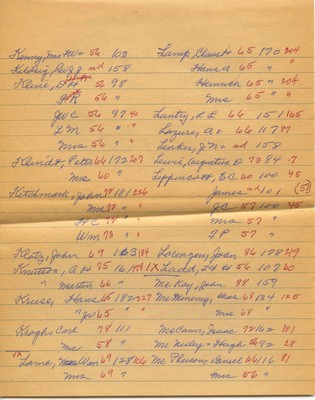 Kenny, Mrs Wm 56 102
Kibbzig, Rev J nd 158
Kline, D H 56 98
H K 56 "
J W C 56 97 40
L M 56 " "
Mrs 56 " "
Klindt, Peter 66 172 207
Mc 60 "
Ketchmark, John 78 181 226
Mc 78 " "
H C 79 " "
Wm 73 " "
Klotz, John 69 183 184
Knutter, A H 75 16
" Mertin 66 "
Kruse, Hans 65 182 227
" Jr 65 " "
Keogh, Carl 78 111
Mc 58 "
Lamd, Wm 69 128 106
Mrs 69 "
Lamp, Claus H 65 170 204
Hans A 65 " "
Heinrich 65 " 204
Mrs 65 " "
Lantry, L E 66 151 165
Lazure, A 66 117 87
Lenker, J N nd 158
Lewis, Augustus D 73 84 7
Lippencott, E C 60 100 45
James 101 (51)
J C 57 100 45
Mrs 57 "
T P 57 "
Loveagess, John 86 178 219
IX Ladd, I H 56 107 60
Mc Kay, John 88 159
Mc Menemy, Chas 68 134 125
Mrs 68 "
McCann, Isaac 72 162 181
Mc Neeley Hugh 66 92 28
Mc Pherson, Daniel 66 116 81
Mrs 56 "